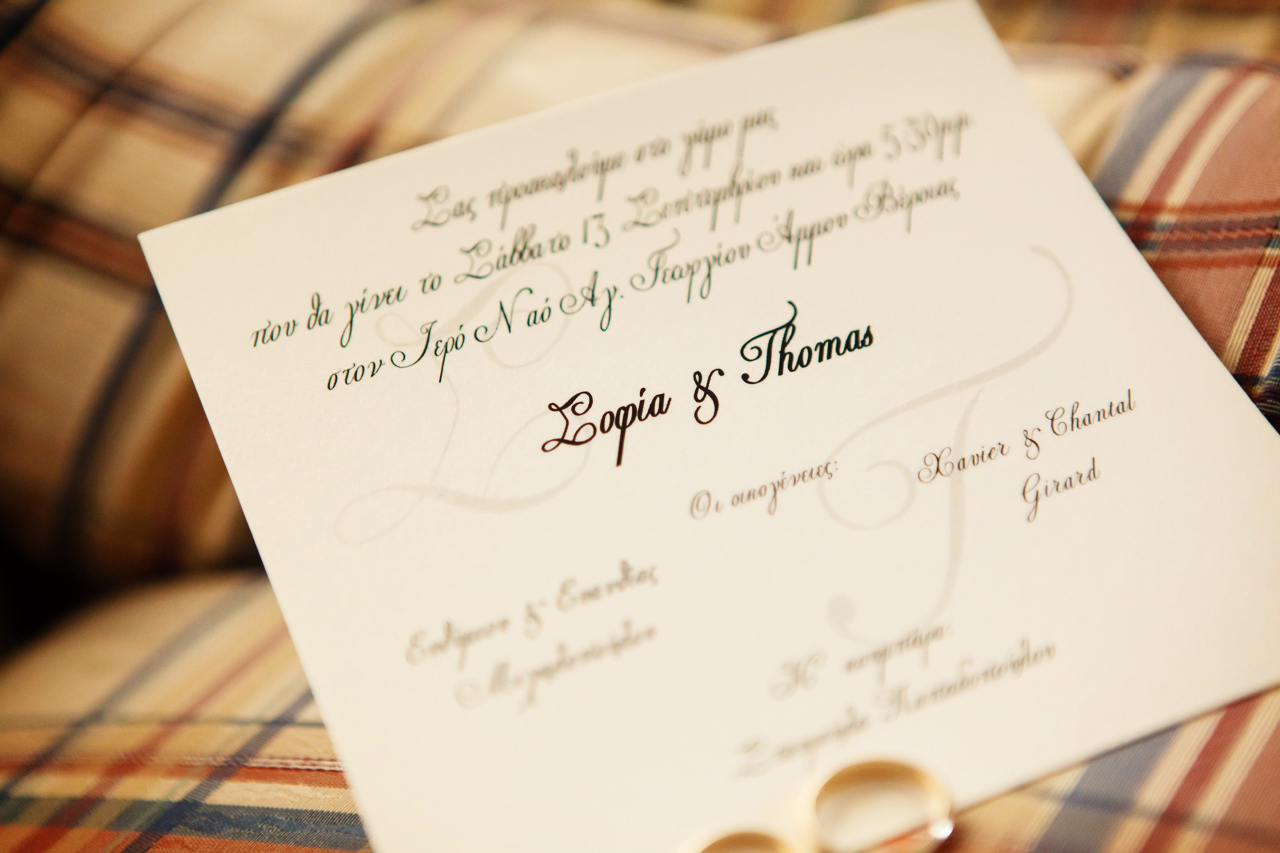 Σας προσκαλούμε στο γάμο μας
που θα γίνει το Σάββατο 13 Σεπτεμβρίου και ώρα 5:30μμ.
στον Ιερό Ναό Αγ. Γεωργίου Άμμου Βέροιας
Σοφία & Thomas
Οι οικογένειες:
Xavier & Chantal
Girard
Ευθύμιου &
Η κουμπάρα:
Παπαδοπούλου